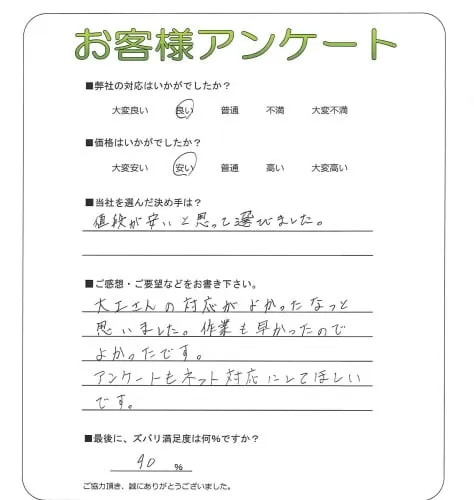 お客様アンケート
■弊社の対応はいかがでしたか？
大変良い 良い 普通 不満 大変不満
■価格はいかがでしたか？
大変安い 安い 普通 高い 大変高い
■当社を選んだ決め手は？
値段が安いと思って選びました。
■ご感想・ご要望などをお書き下さい。
大工さんの対応がよかったなっと
思いました。作業も早かったので
よかったです。
アンケートもネット対応にしてほしい
です。
■最後に、ズバリ満足度は何%ですか？
90 %
ご協力頂き、誠にありがとうございました。